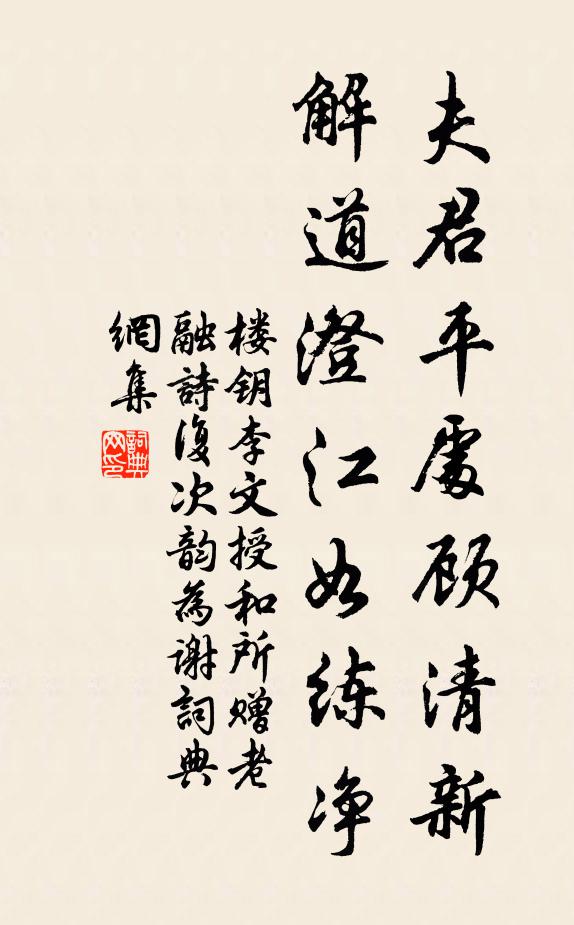 夫君平處顾清新
解道澄江如练净
楼钥李文授和所赠老
融詩復次韵為谢詞典
網集
詞典网印